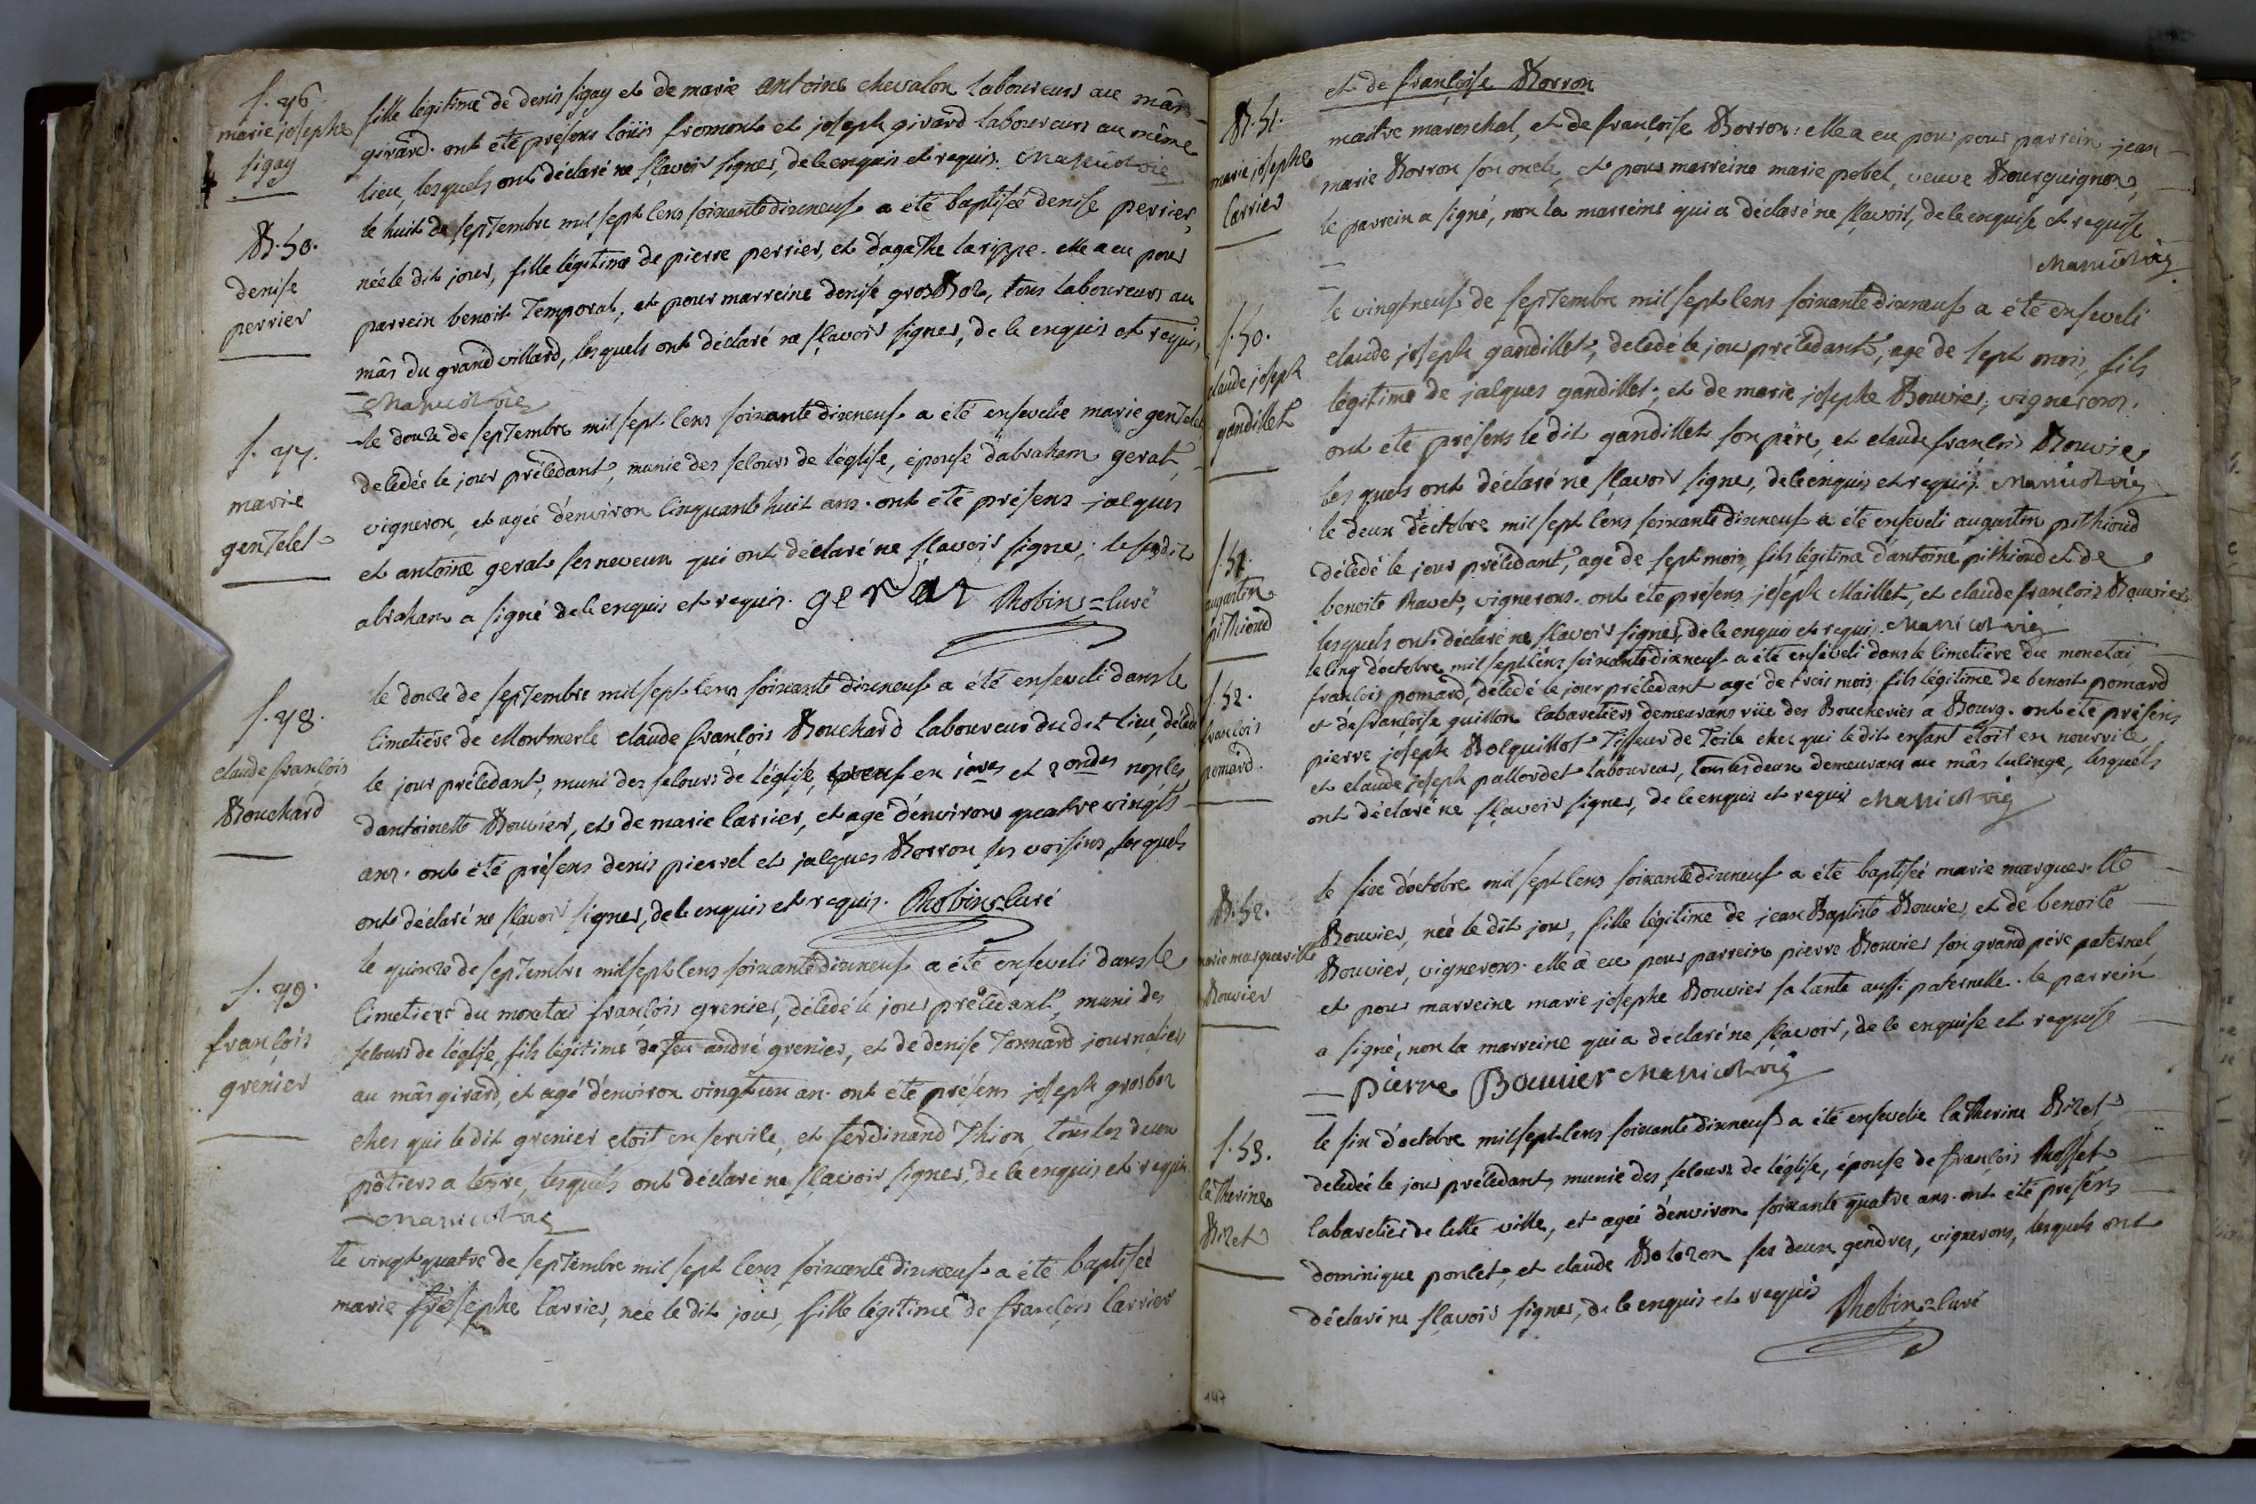 S. 46.
marie josephe
sigay
fille légitime de denis sigay et de marie antoine chevalon laboureurs au mâs
girard. ont été présens loüis fromont et joseph girard laboureurs au même
lieu, lesquels ont déclaré ne sçavoir signer, de ce enquis et requis.
B. 50.
denise
perrier
le huit de septembre mil sept cens soixante dixneuf a été baptisée denise perrier,
née le dit jour, fille légitime de pierre perrier, et d'agathe larippe. elle a eu pour
parrein benoit Temporal, et pour marreine denise grosBoz, tous laboureurs au
mâs du grand villard, lesquels ont déclaré ne sçavoir signer, de ce enquis et requis
S. 47.
marie
gentelet
le douze de septembre mil sept cens soixante dixneuf a été ensevelie marie gentelet
decedée le jour précedant, munie des secours de l'église, épouse d'abraham gerat,
vigneron, et agée d'environ cinquante huit ans. ont été présens jacques
et antoine gerat ses neveux qui ont déclaré ne sçavoir signer; le susdit
abraham a signé de ce enquis et requis. gerat Robin = curé
S. 48.
claude françois
Bouchard
le douze de septembre mil sept cens soixante dixneuf a été enseveli dans le
cimetière de Montmerle claude françois Bouchard laboureur du dit lieu, décédé
le jour précedant, muni des secours de l'église, en 1eres et 2ondes nopces
d'antoinette Bouvier, et de marie carrier, et agé d'environ quatre vingts
ans. ont été présens denis pierrel et jacques Borron ses voisins, lesquels
ont déclaré ne sçavoir signer, de ce enquis et requis. Robin = curé
S. 49.
françois
grenier
le quinze de septembre mil sept cens soixante dixneuf a été enseveli dans le
cimetière du monetai françois grenier, décedé le jour précedant, muni des
secours de l'église, fils légitime de feu andré grenier, et de denise Tonnard journaliers
au mâs girard, et agé d'environ vingt un an. ont été présens joseph grosboz
chez qui le dit grenier etoit en service, et ferdinand Thion, tous les deux
pôtiers a terre, lesquels ont déclaré ne sçavoir signer, de ce enquis et requis.
le vingt quatre de septembre mil sept cens soixante dixneuf a été baptisée
marie josephe carrier, née le dit jour, fille légitime de françois carrier
et de françoise Borron
B. 51.
marie josephe
carrier
maitre mareschal, et de françoise Borron: elle a eu pour pour parrein jean
marie Borron son oncle, et pour marreine marie pobel, veuve Bourguignon,
le parrein a signé, non la marreine qui a déclaré ne sçavoir, de ce enquise et requise
S. 50.
claude joseph
gandillet
le vingtneuf de septembre mil sept cens soixante dixneuf a été enseveli
claude joseph gandillet, decedé le jour précedant, agé de sept mois, fils
légitime de jacques gandillet, et de marie josephe Bouvier, vignerons.
ont été présens le dit gandillet son père, et claude françois Bouvier
lesquels ont déclaré ne sçavoir signer, de ce enquis et requis.
S. 51.
augustin
pithioud
le deux d'octobre mil sept cens soixante dixneuf a été enseveli augustin pithioud
décédé le jour précedant, agé de sept mois, fils légitime d'antoine pithioud et de
benoite Ravet, vignerons. ont été présens joseph Maillet, et claude françois Bouvier
lesquels ont déclaré ne sçavoir signer, de ce enquis et requis.
S. 52.
françois
pomard.
le cinq d'octobre mil sept cens soixante dixneuf a été enseveli dans le cimetière du monetai
françois pomard, décedé le jour précedant agé de trois mois, fils légitime de benoit pomard
et de françoise guillon cabaretiers demeurans rüe des Boucheries a Bourg. ont été présens
pierre joseph Bolquillot Tisseur de Toile chez qui le dit enfant étoit en nourrice
et claude joseph pallordet laboureur, tous les deux demeurans au mâs culinge, lesquels
ont déclaré ne sçavoir signer, de ce enquis et requis
B. 52.
marie marguerite
Bouvier
le six d'octobre mil sept cens soixante dixneuf a été baptisée marie marguerite
Bouvier, née le dit jour, fille légitime de jean Baptiste Bouvier, et de benoite
Bouvier, vignerons. elle a eu pour parrein pierre Bouvier son grand père paternel
et pour marreine marie josephe Bouvier sa tante aussi paternelle. le parrein
a signé, non la marreine qui a déclaré ne sçavoir, de ce enquise et requise
pierre Bouvier
S. 53.
catherine
Bizet
le six d'octobre mil sept cens soixante dixneuf a été ensevelie catherine Bizet,
decedée le jour précedant, munie des secours de l'église, épouse de françois Rosset
cabaretier de cette ville, et agée d'environ soixante quatre ans. ont été présens
dominique poncet, et claude Bolozon ses deux gendres, vignerons, lesquels ont
déclaré ne sçavoir signer, de ce enquis et requis Robin = curé
147